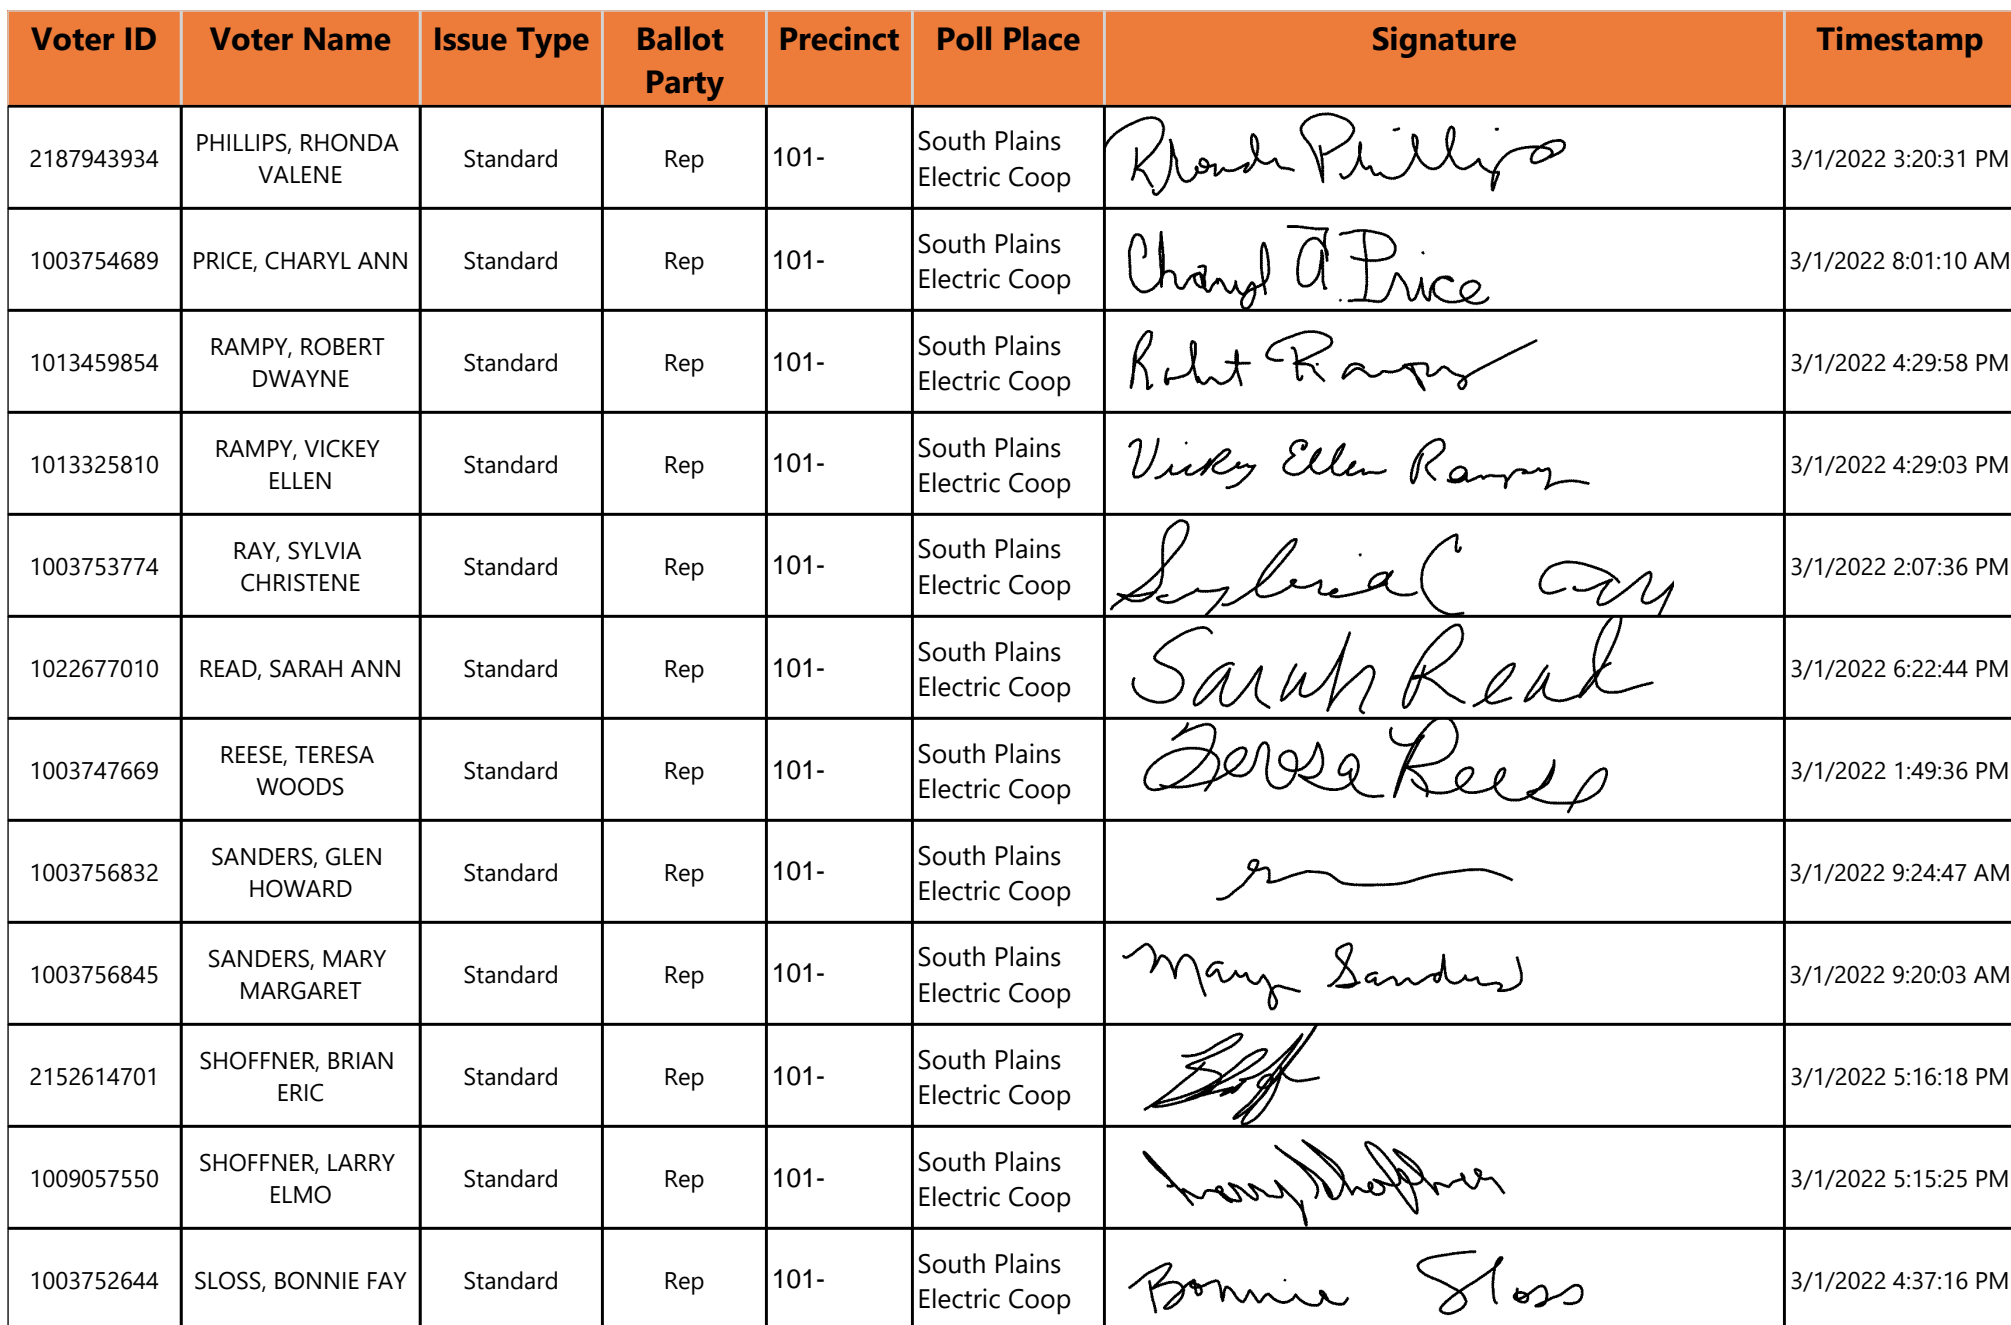 Voter ID Voter Name Issue Type Ballot Party Precinct Poll Place Signature Timestamp
2187943934 PHILLIPS, RHONDA VALENE Standard Rep 101- South Plains Electric Coop Rhonda Phillips 3/1/2022 3:20:31 PM
1003754689 PRICE, CHARYL ANN Standard Rep 101- South Plains Electric Coop Charyl A. Price 3/1/2022 8:01:10 AM
1013459854 RAMPY, ROBERT DWAYNE Standard Rep 101- South Plains Electric Coop Robert Rampy 3/1/2022 4:29:58 PM
1013325810 RAMPY, VICKEY ELLEN Standard Rep 101- South Plains Electric Coop Vickey Ellen Rampy 3/1/2022 4:29:03 PM
1003753774 RAY, SYLVIA CHRISTENE Standard Rep 101- South Plains Electric Coop Sylvia C 3/1/2022 2:07:36 PM
1022677010 READ, SARAH ANN Standard Rep 101- South Plains Electric Coop Sarah Read 3/1/2022 6:22:44 PM
1003747669 REESE, TERESA WOODS Standard Rep 101- South Plains Electric Coop Teresa Reese 3/1/2022 1:49:36 PM
1003756832 SANDERS, GLEN HOWARD Standard Rep 101- South Plains Electric Coop 3/1/2022 9:24:47 AM
1003756845 SANDERS, MARY MARGARET Standard Rep 101- South Plains Electric Coop Mary Sanders 3/1/2022 9:20:03 AM
2152614701 SHOFFNER, BRIAN ERIC Standard Rep 101- South Plains Electric Coop 3/1/2022 5:16:18 PM
1009057550 SHOFFNER, LARRY ELMO Standard Rep 101- South Plains Electric Coop Larry Shoffner 3/1/2022 5:15:25 PM
1003752644 SLOSS, BONNIE FAY Standard Rep 101- South Plains Electric Coop Bonnie Sloss 3/1/2022 4:37:16 PM